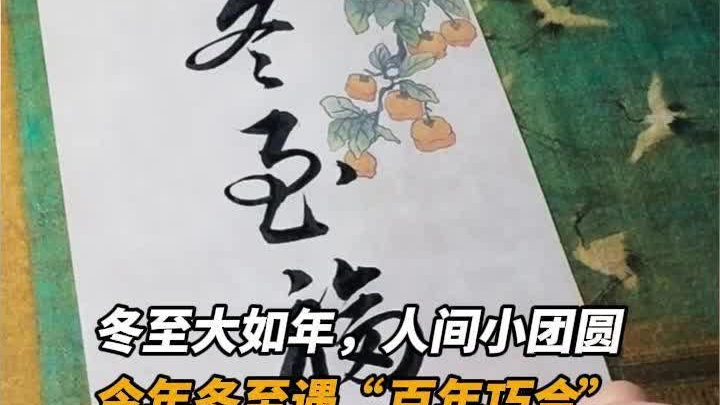 冬至福
冬至大如年，人间小团圆
今年冬至遇“百年巧合”